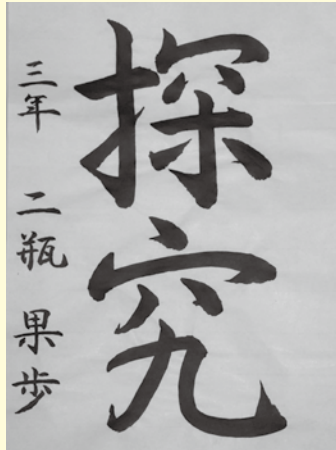 探究
三年 二瓶 果歩